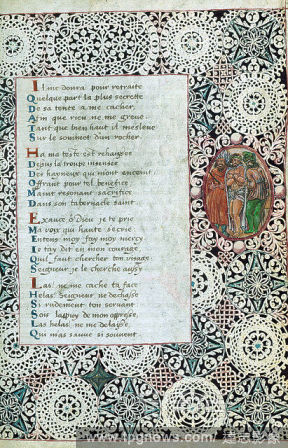 Il me donra pour retraite
Quelque part la plus secrette
De sa tente a me cacher,
Afin que rien ne me greue
Tant que bien haut il m'esleue
Sur le sommet d'un rocher.
Ha ma teste est rehaussee
Depuis la troupe insensee
Des hayneux qui m'ont enceint
Offrant pour tel benefice
Maint resonant sacrifice
Dans son tabernacle saint.
Exauce ô Dieu je te prie
Ma voix qui haute s'ecrie
Entens moy fay moy mercy
Ie tay dit en mon courage
Quil faut chercher ton visage
Seigneur je le cherche aussy
Las! ne me cache ta face
Helas! Seigneur ne dechasse
Si rudement ton seruant
Sois lappuy de mon opresse,
Las helas, ne me delaisse,
Qui m'as sauué si souuent.
www.fpgnews.com